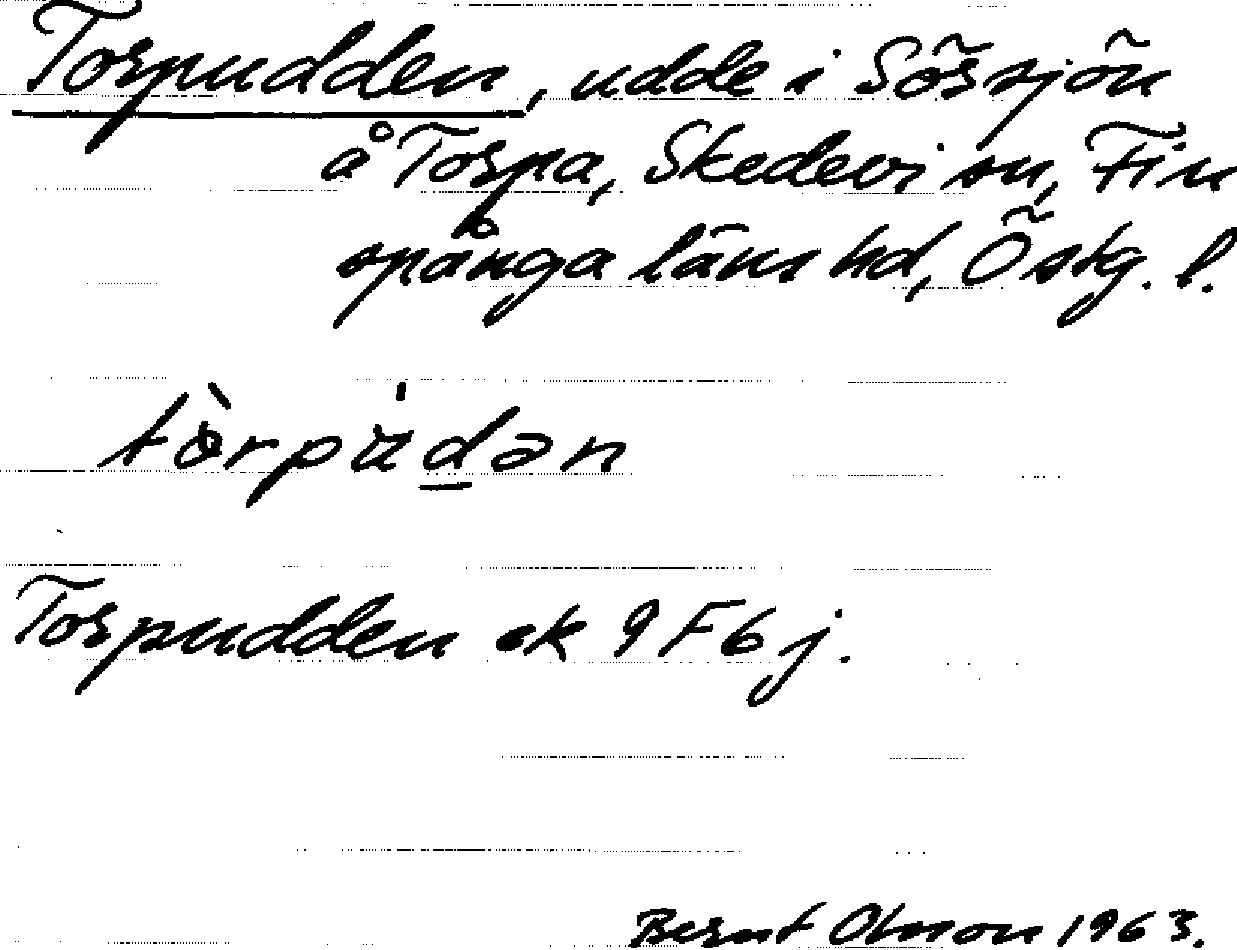 Torpudden, udde i Sörsjön
å Torpa, Skedevi sn, Fin
spånga läns hd, Östg. l.
tòrpu̇dən
Torpudden ek 9F6j.
Bernt Olsson 1963.